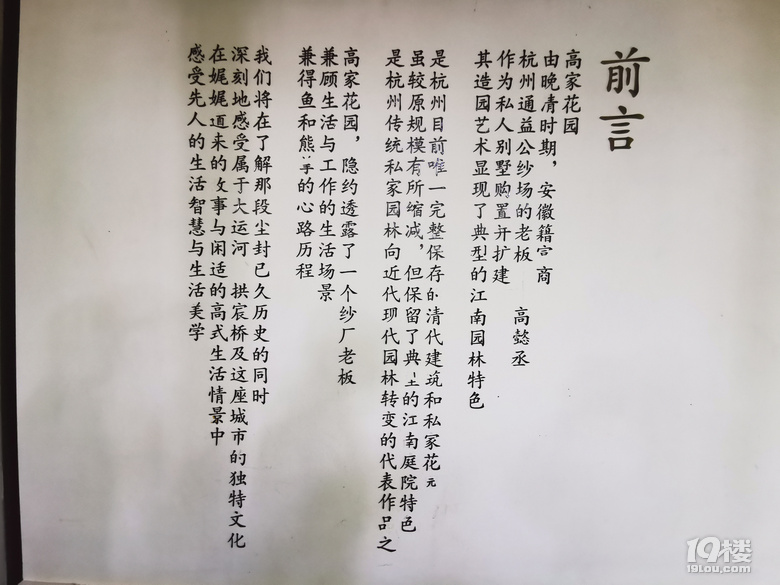 前言
高家花园
由晚清时期，安徽籍官商
杭州通益公纱场的老板 高懿丞
作为私人别墅购置并扩建
其造园艺术显现了典型的江南园林特色
是杭州目前唯一完整保存的清代建筑和私家花园
虽较原规模有所缩减，但保留了典型的江南庭院特色
是杭州传统私家园林向近代现代园林转变的代表作品之
高家花园，隐约透露了一个纱厂老板
兼顾生活与工作的生活场景
兼得鱼和熊掌的心路历程
我们将在了解那段尘封已久历史的同时
深刻地感受属于大运河 拱宸桥及这座城市的独特文化
在娓娓道来的故事与闲适的高式生活情景中
感受先人的生活智慧与生活美学
19楼
19lou.com